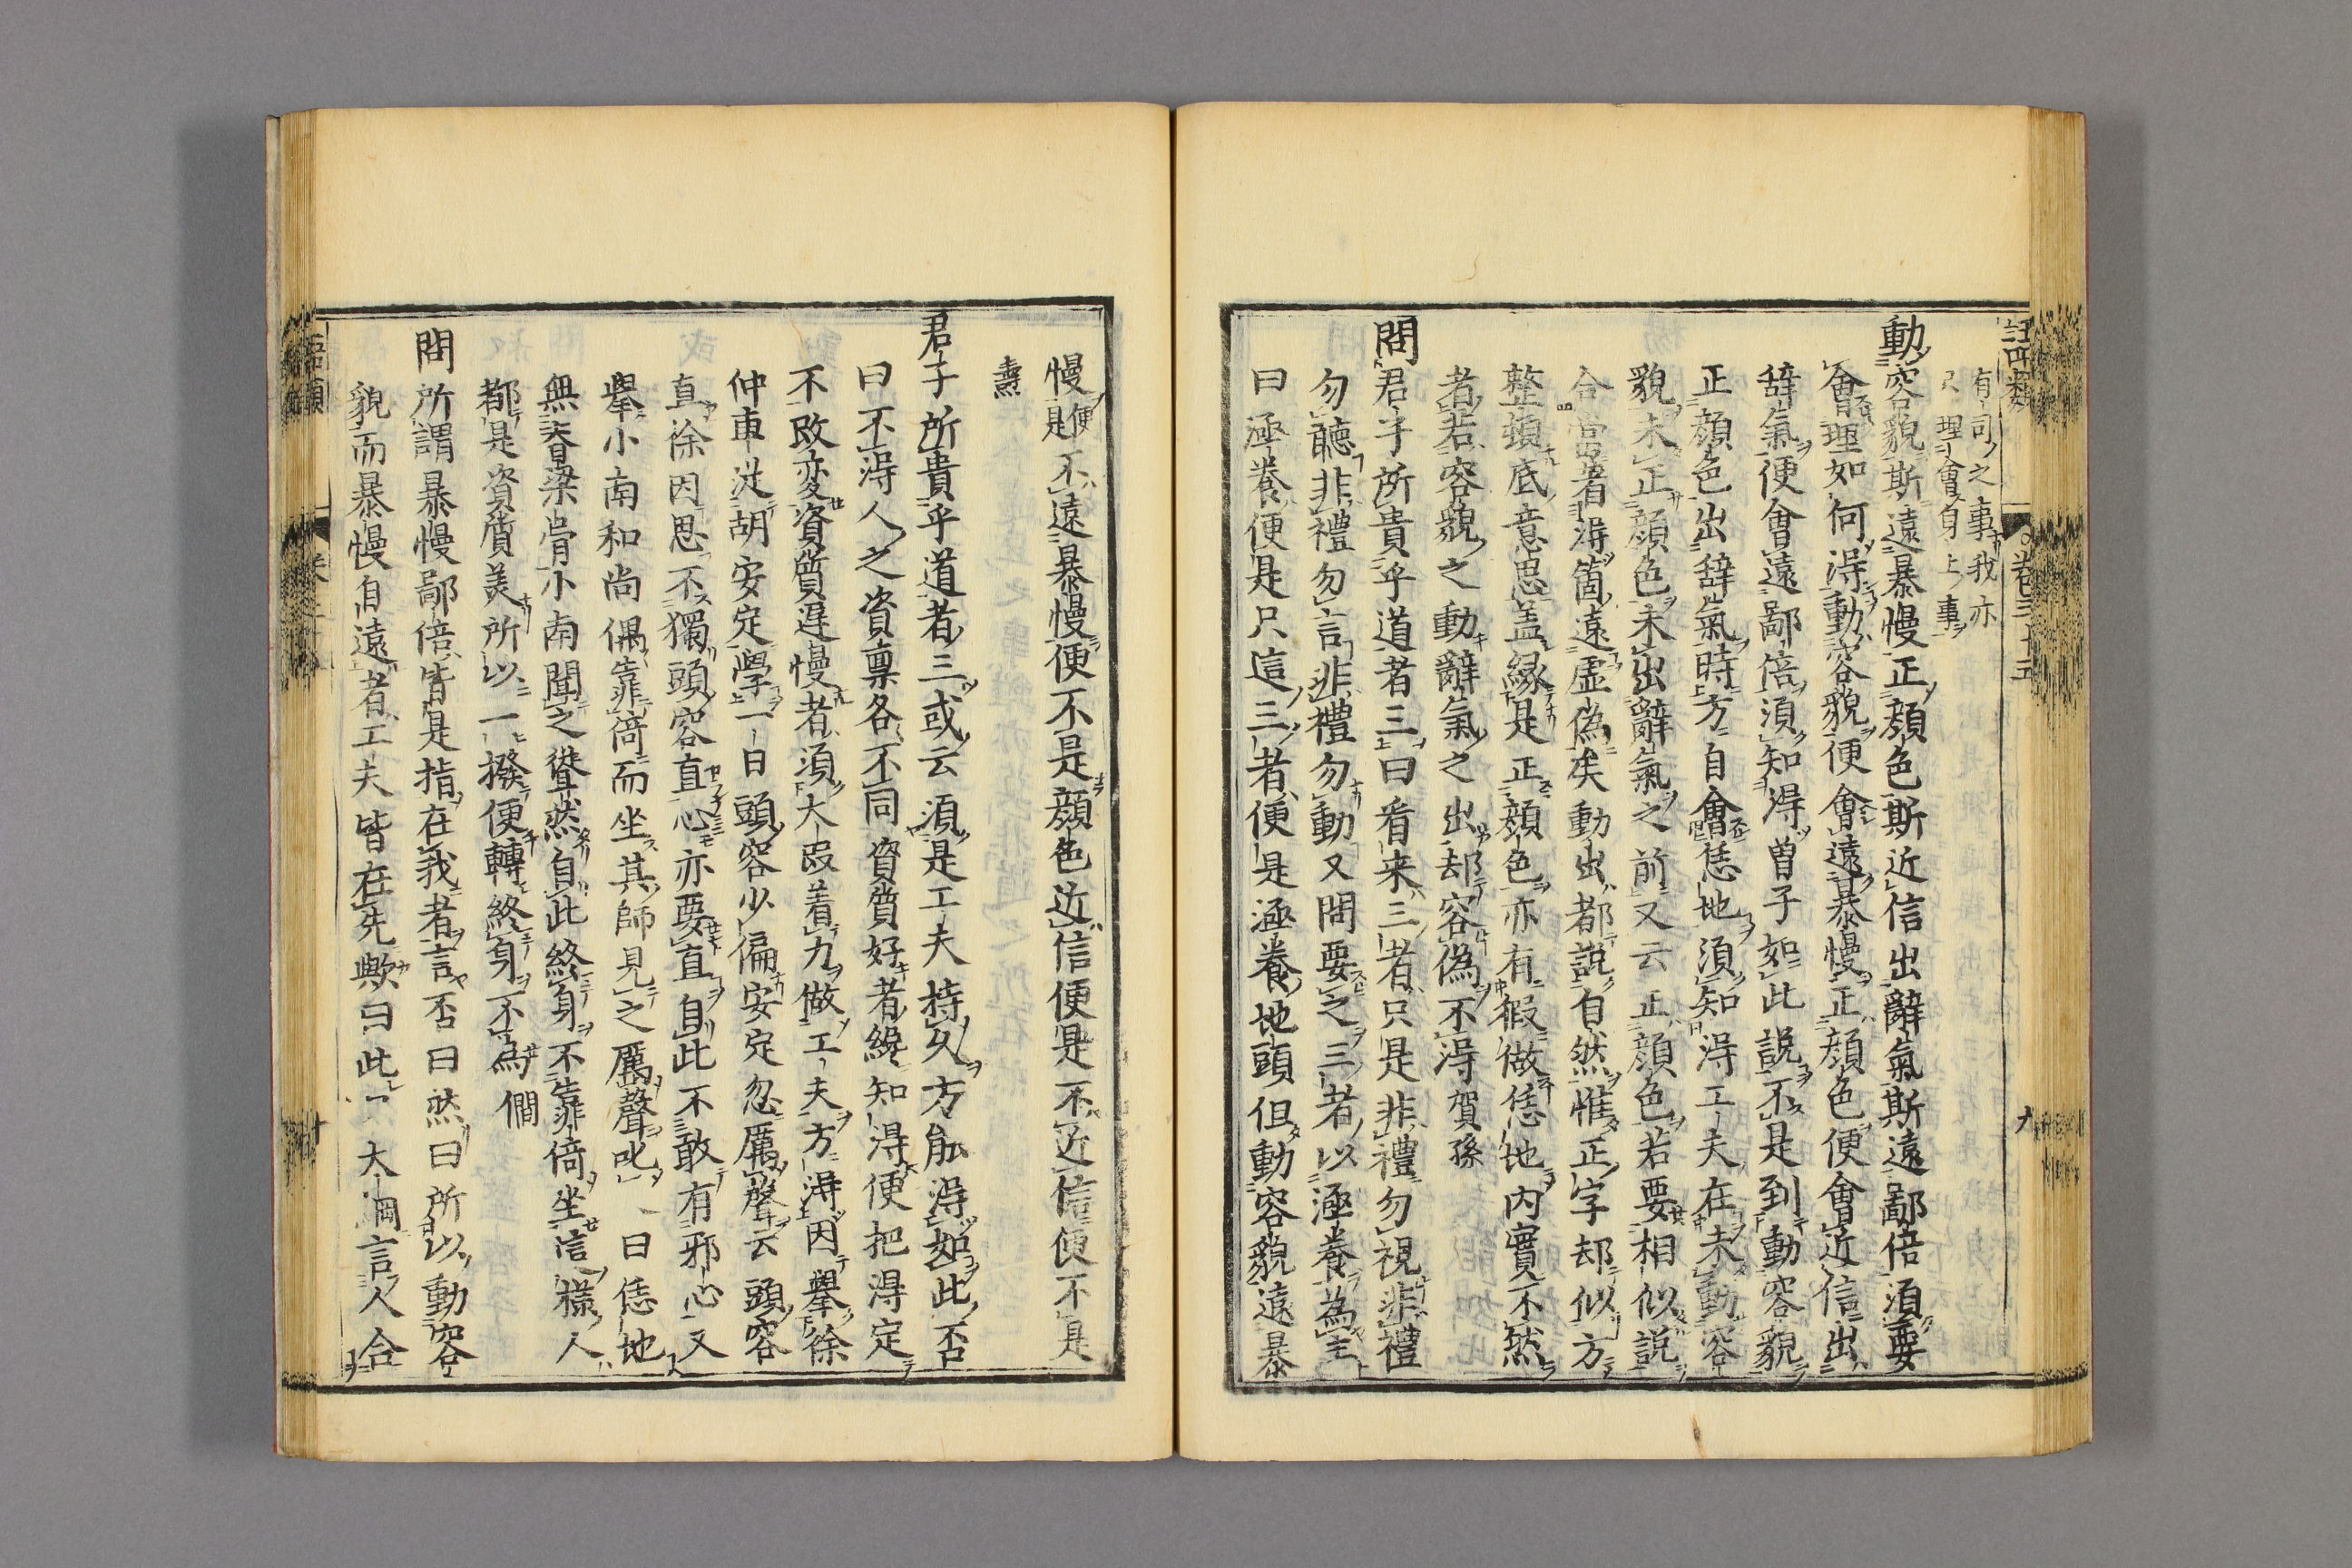 有司之事我亦
只理會身上事
動容貌斯遠暴慢正顔色斯近信出辭氣斯遠鄙倍須要
會理如何得動容貌便會遠暴慢正顔色便會近信出
辭氣便會遠鄙倍須知得曽子如此説不是到動容貌
正顔色出辭氣時方自會恁地須知得工夫在未動容
貌未正顔色未出辭氣之前又云正顔色若要相似説
合當著得箇遠虚偽矣動出都説自然惟正字却似方
整頓底意思盖縁是正顔色亦有假做恁地内實不然
者若容貌之動辭氣之出却容偽不得 賀孫
問君子所貴乎道者三曰看来三者只是非禮勿視非禮
勿聽非禮勿言非禮勿動又問要之三者以涵養為主
曰涵養便是只這三者便是涵養地頭但動容貌遠暴
卷三十五
九
慢便是不遠暴慢便不是顔色近信便是不近信便不是
燾
君子所貴乎道者三或云須是工夫持久方能得如此否
曰不得人之資稟各不同資質好者纔知得便把得定
不改変資質遲慢者須大叚着力做工夫方得因舉徐
仲車從胡安定學一日頭容少偏安定忽厲聲云頭容
直徐因思不獨頭容直心亦要直自此不敢有邪心又
舉小南和尚偶靠倚而坐其師見之厲聲叱之曰恁地
無脊梁骨小南聞之聳然自此終身不靠倚坐這様人
都是資質美所以一撥便轉終身不為 僩
問所謂暴慢鄙倍皆是指在我者言否曰然曰所以動容
貌而暴慢自遠者工夫皆在先歟曰此只大綱言人合
語類